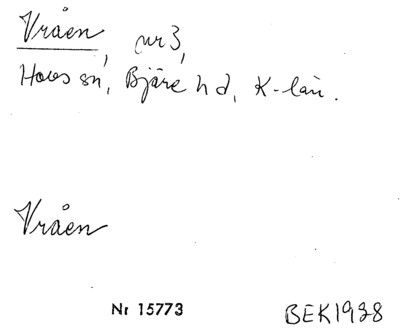 Vråen, nr 3,
Hovs sn, Bjäre hd, K-län.
Vråen
Nr 15773
BEK1928